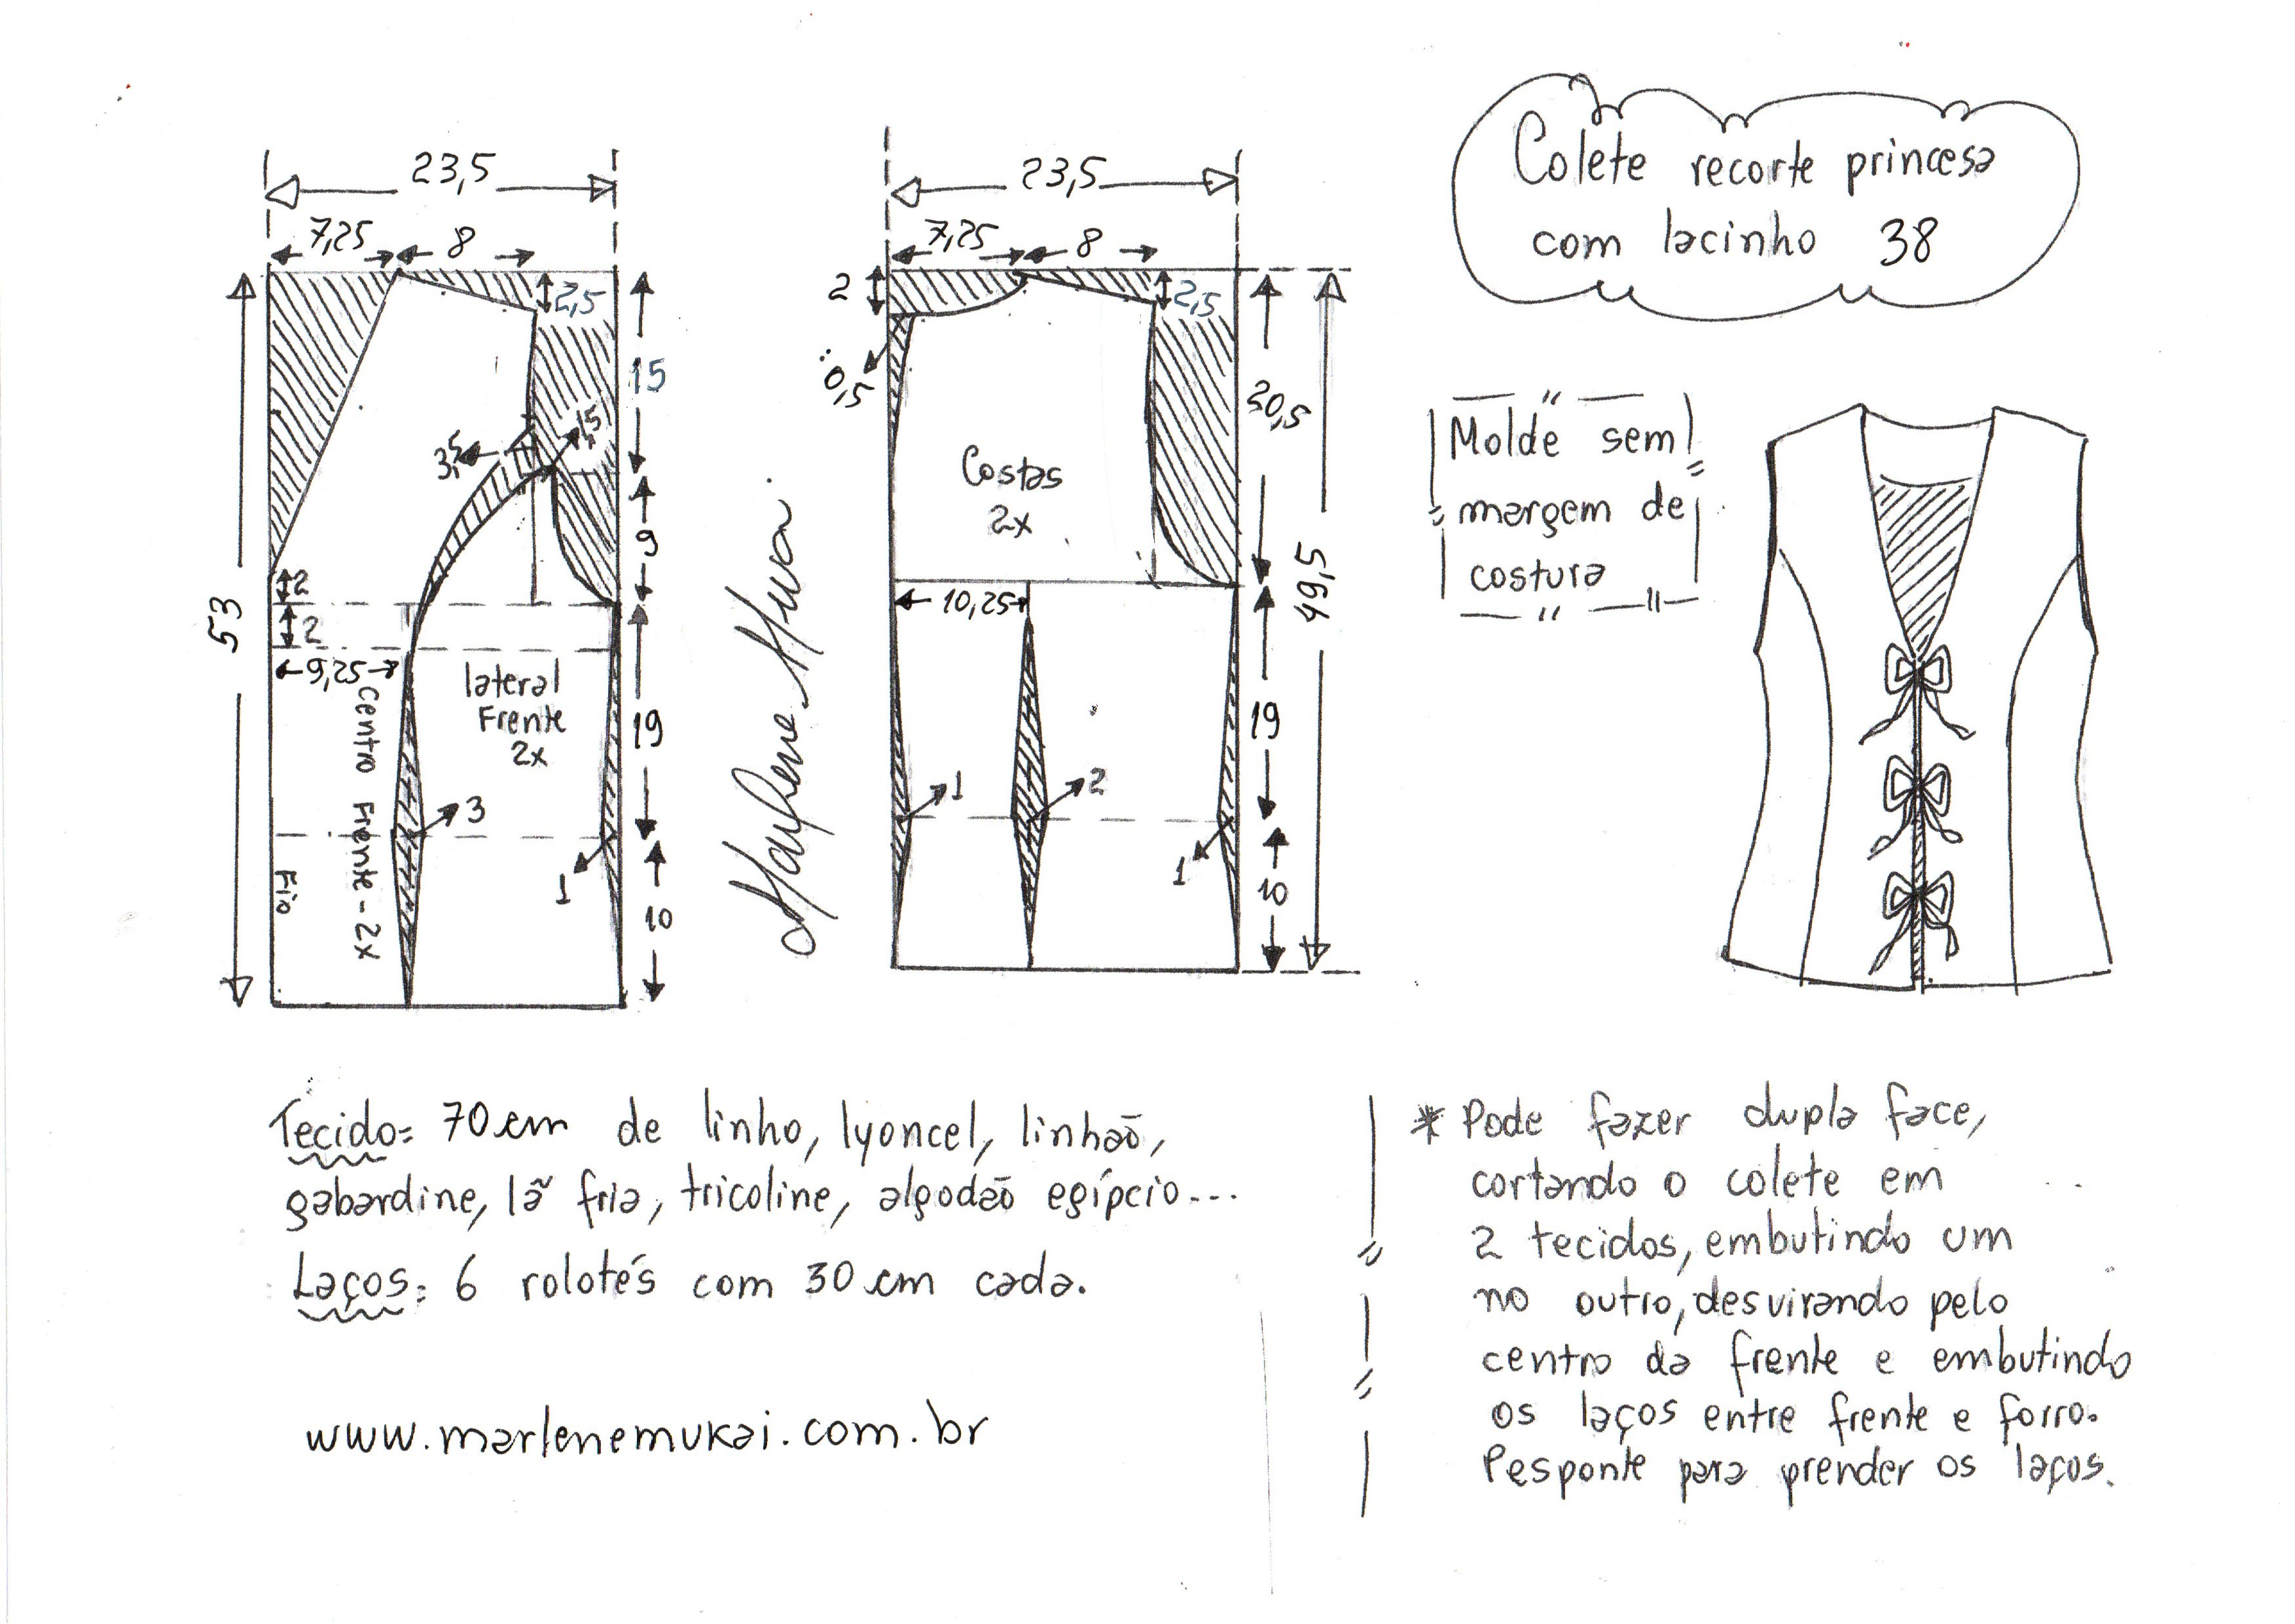 23,5
7,25 8
2,5
15
1,5
3,5
9
2
2
53
9,25
Centro Frente - 2x
lateral
Frente
2x
19
3
1
Fio
10
23,5
7,25 8
2
2,5
0,5
20,5
Costas
2x
49,5
10,25
19
1
2
1
10
Colete recorte princesa
com lacinho 38
Molde sem
margem de
costura
Tecido: 70 cm de linho, lyoncel, linhão,
gabardine, lã fria, tricoline, algodão egípcio...
Laços: 6 rolotés com 30 cm cada.
www.marlenemukai.com.br
* Pode fazer dupla face,
cortando o colete em
2 tecidos, embutindo um
no outro, desvirando pelo
centro da frente e embutindo
os laços entre frente e forro.
Pesponte para prender os laços.